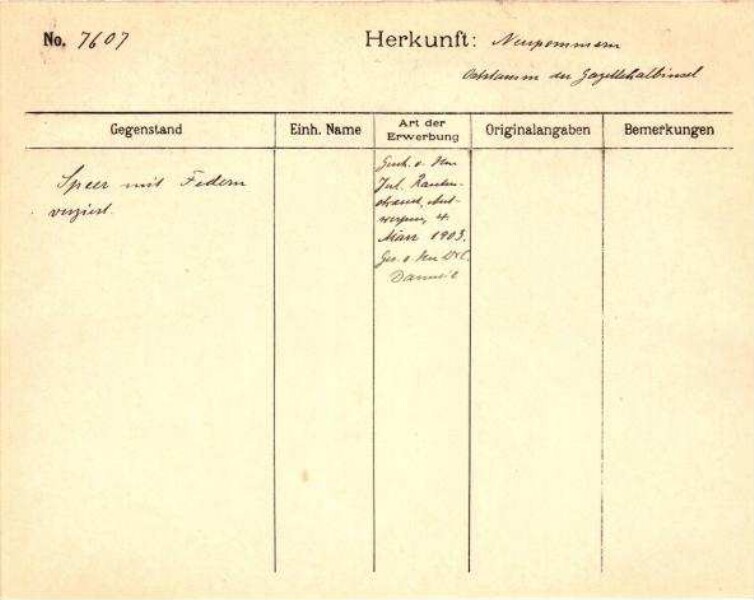 No. 7607
Herkunft: Neupommern
Oststamm der Gazellehalbinsel
Gegenstand
Einh. Name
Art der
Erwerbung
Originalangaben
Bemerkungen
Speer mit Federn
verziert.
Gesch. v. Herrn
Jul. Rauten-
strauch, Ant-
werpen, 4.
März 1903.
Ges. v. Herrn Dr. C.
Danneil